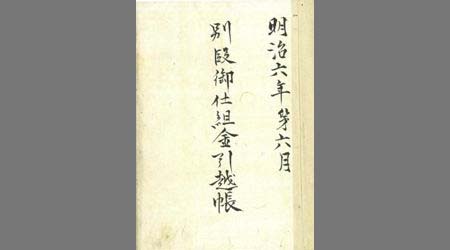 明治六年第六月
別段御仕組金引越帳